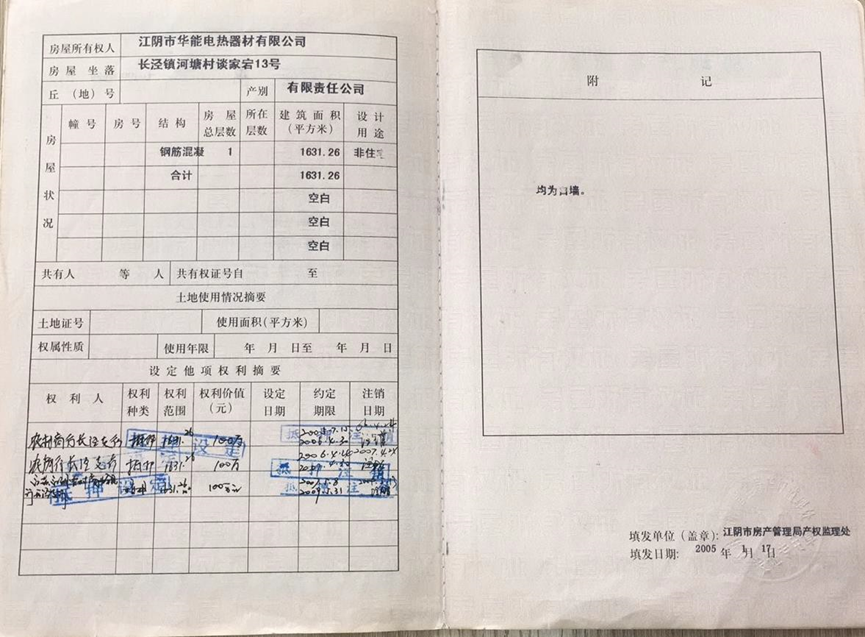 房屋所有权人 江阴市华能电热器材有限公司
房屋坐落 长泾镇河塘村谈家宕13号
丘（地）号 产别 有限责任公司
房屋状况
幢号 房号 结构 房屋总层数 所在层数 建筑面积（平方米） 设计用途
钢筋混凝 1 1631.26 非住
合计 1631.26
空白
空白
空白
共有人 等 人 共有权证号自 至
土地使用情况摘要
土地证号 使用面积(平方米)
权属性质 使用年限 年 月 日至 年 月 日
设定他项权利摘要
权利人 权利种类 权利范围 权利价值（元） 设定日期 约定期限 注销日期
抵押 1631.26 100万
抵押 1631.26 100万
1631.26 100万
抵押注销
附 记
均为自墙。
填发单位（盖章）：江阴市房产管理局产权监理处
填发日期： 2005 年 1 月 17 日